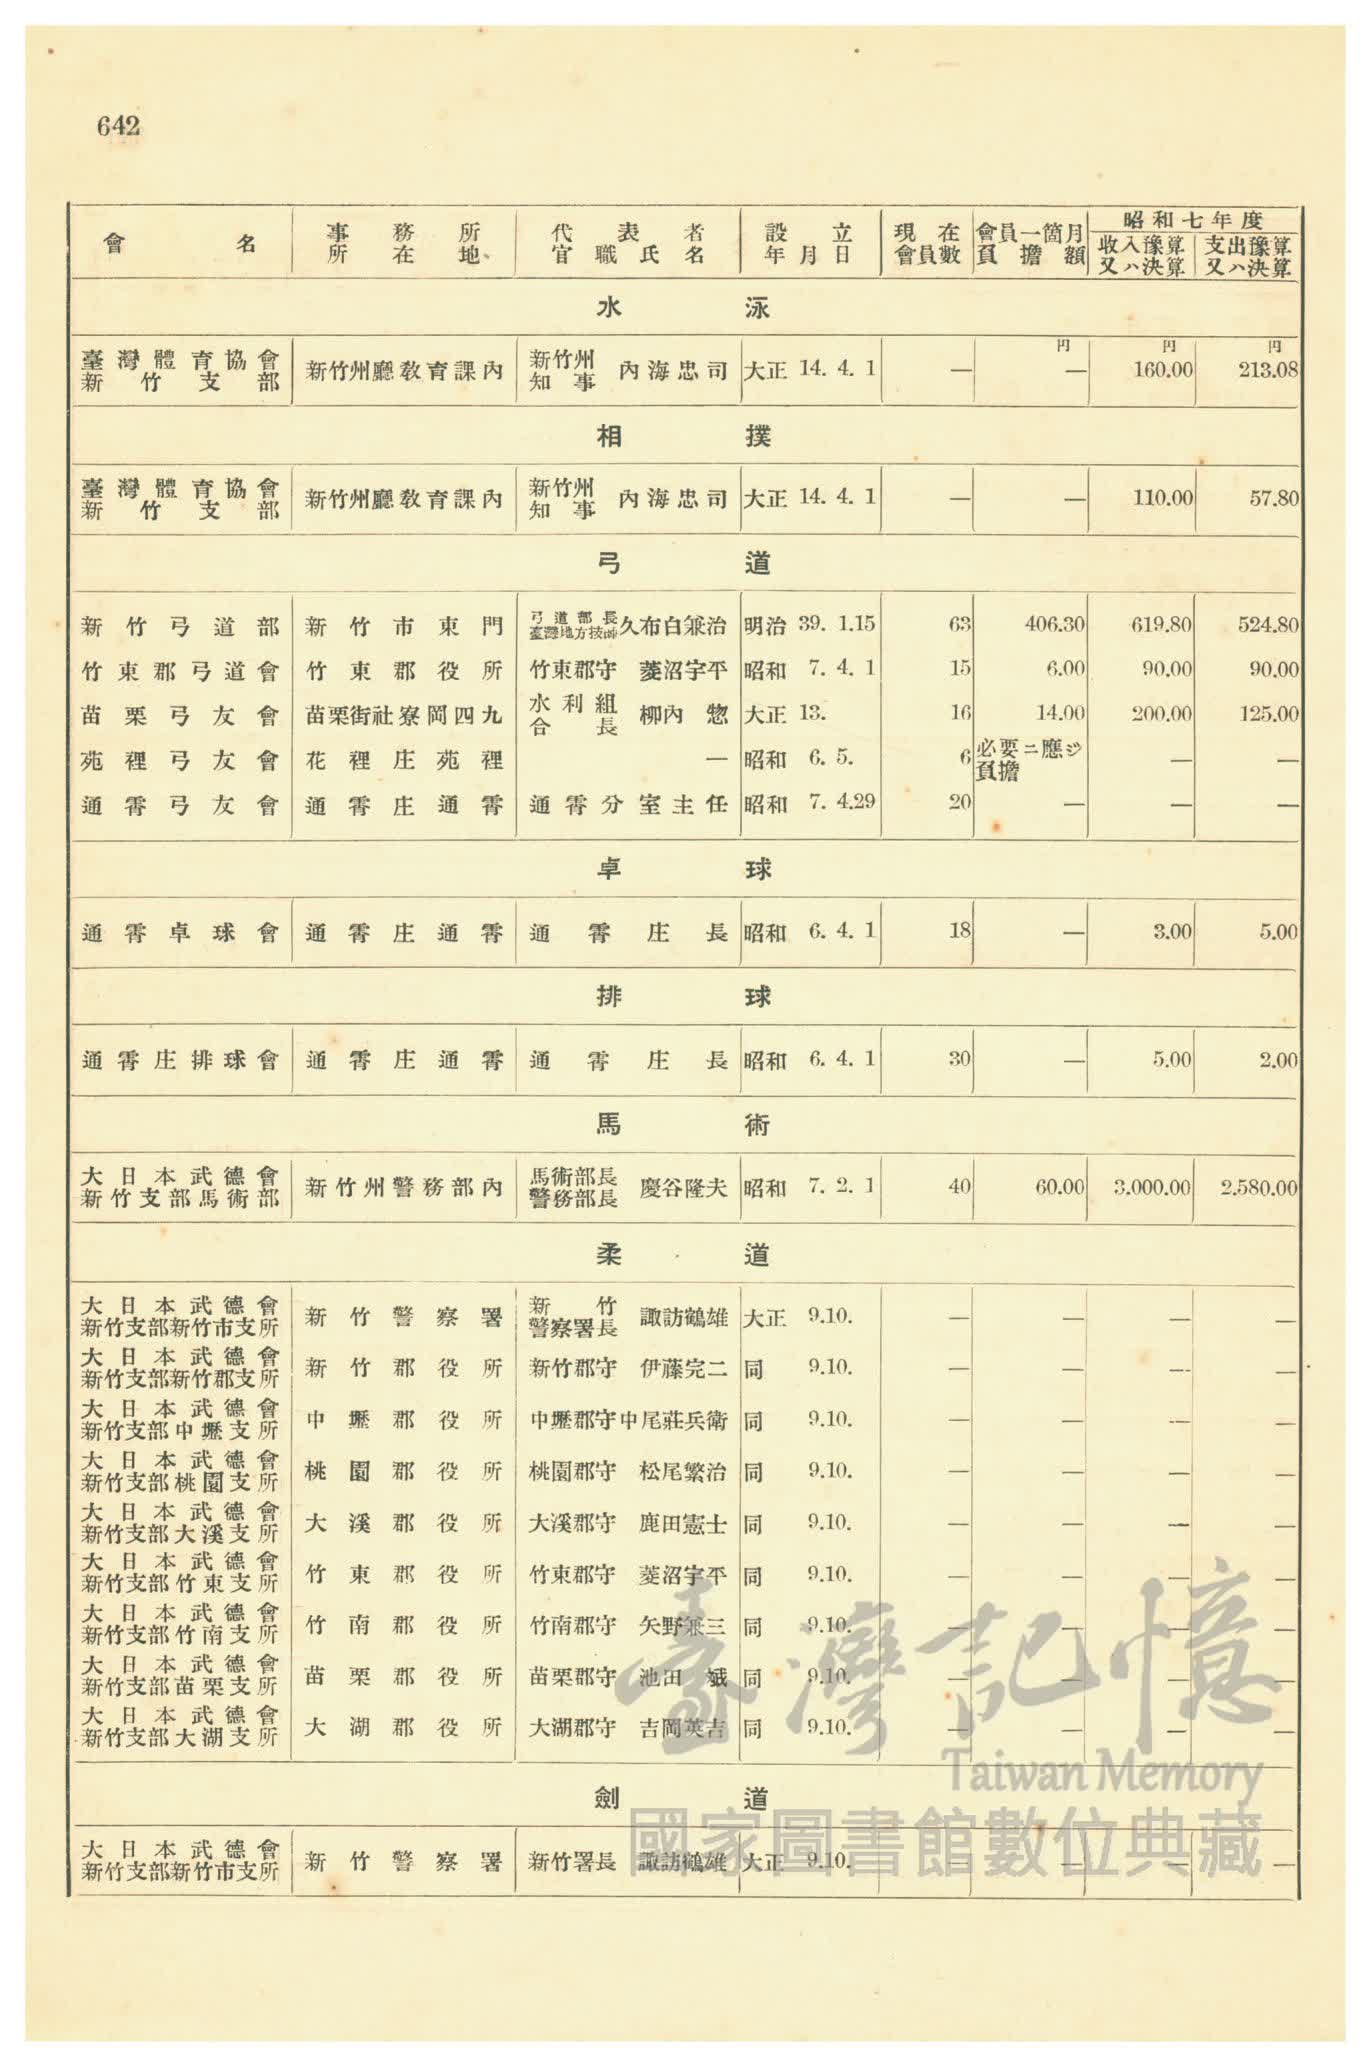 642
會名 事務所所在地 代表者官職氏名 設立年月日 現在會員數 會員一箇月負擔額 昭和七年度
收入豫算又ハ決算 支出豫算又ハ決算
水泳
円 円 円
臺灣體育協會新竹支部 新竹州廳教育課內 新竹州知事 內海忠司 大正 14. 4. 1 — — 160.00 213.08
相撲
臺灣體育協會新竹支部 新竹州廳教育課內 新竹州知事 內海忠司 大正 14. 4. 1 — — 110.00 57.80
弓道
新竹弓道部 新竹市東門 弓道部長臺灣地方技師 久布白兼治 明治 39. 1.15 63 406.30 619.80 524.80
竹東郡弓道會 竹東郡役所 竹東郡守 菱沼宇平 昭和 7. 4. 1 15 6.00 90.00 90.00
苗栗弓友會 苗栗街社寮岡四九 水利組合長 柳內惣 大正 13. 16 14.00 200.00 125.00
苑裡弓友會 花裡庄苑裡 — 昭和 6. 5. 6 必要ニ應ジ負擔 — —
通霄弓友會 通霄庄通霄 通霄分室主任 昭和 7. 4.29 20 — — —
卓球
通霄卓球會 通霄庄通霄 通霄庄長 昭和 6. 4. 1 18 — 3.00 5.00
排球
通霄庄排球會 通霄庄通霄 通霄庄長 昭和 6. 4. 1 30 — 5.00 2.00
馬術
大日本武德會新竹支部馬術部 新竹州警務部內 馬術部長警務部長 慶谷隆夫 昭和 7. 2. 1 40 60.00 3.000.00 2.580.00
柔道
大日本武德會新竹支部新竹市支所 新竹警察署 新竹警察署長 諏訪鶴雄 大正 9.10. — — — —
大日本武德會新竹支部新竹郡支所 新竹郡役所 新竹郡守 伊藤完二 同 9.10. — — — —
大日本武德會新竹支部中壢支所 中壢郡役所 中壢郡守 中尾莊兵衛 同 9.10. — — — —
大日本武德會新竹支部桃園支所 桃園郡役所 桃園郡守 松尾繁治 同 9.10. — — — —
大日本武德會新竹支部大溪支所 大溪郡役所 大溪郡守 鹿田憲士 同 9.10. — — — —
大日本武德會新竹支部竹東支所 竹東郡役所 竹東郡守 菱沼宇平 同 9.10. — — — —
大日本武德會新竹支部竹南支所 竹南郡役所 竹南郡守 矢野兼三 同 9.10. — — — —
大日本武德會新竹支部苗栗支所 苗栗郡役所 苗栗郡守 池田 同 9.10. — — — —
大日本武德會新竹支部大湖支所 大湖郡役所 大湖郡守 吉岡英吉 同 9.10. — — — —
劍道
大日本武德會新竹支部新竹市支所 新竹警察署 新竹署長 諏訪鶴雄 大正 9.10. — — — —
臺灣記憶
Taiwan Memory
國家圖書館數位典藏